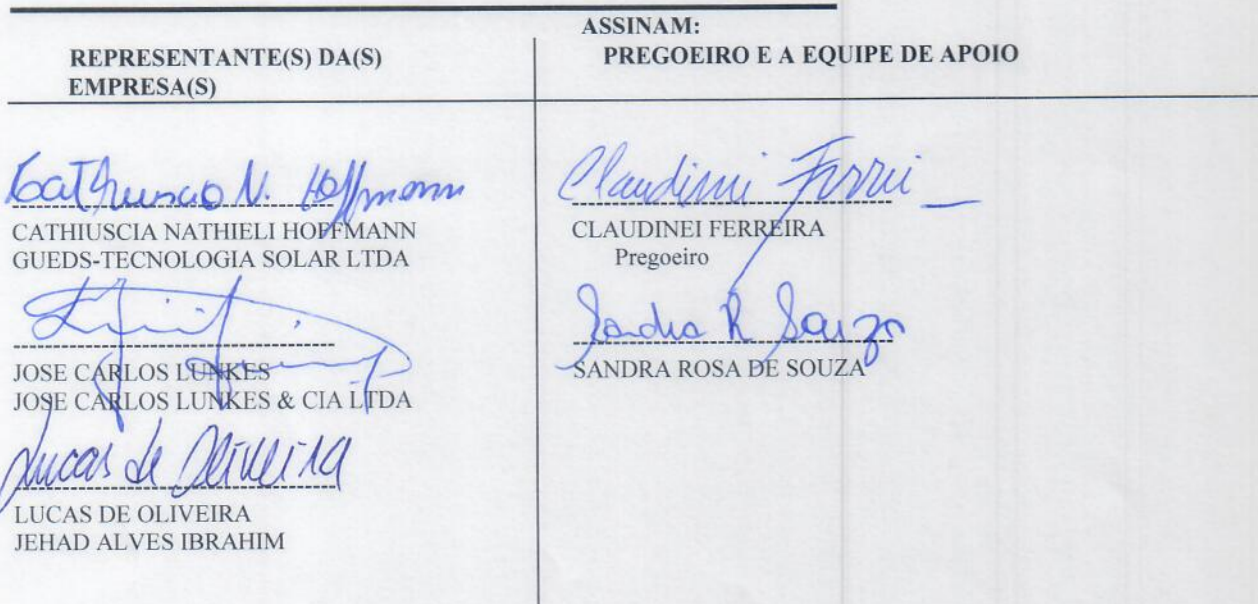 ASSINAM:
REPRESENTANTE(S) DA(S)
EMPRESA(S)
Cathiuscia N. Hoffmann
CATHIUSCIA NATHIELI HOFFMANN
GUEDS-TECNOLOGIA SOLAR LTDA
JOSE CARLOS LUNKES
JOSE CARLOS LUNKES & CIA LTDA
Lucas de Oliveira
LUCAS DE OLIVEIRA
JEHAD ALVES IBRAHIM
PREGOEIRO E A EQUIPE DE APOIO
Claudinei
CLAUDINEI FERREIRA
Pregoeiro
Sandra R Souza
SANDRA ROSA DE SOUZA